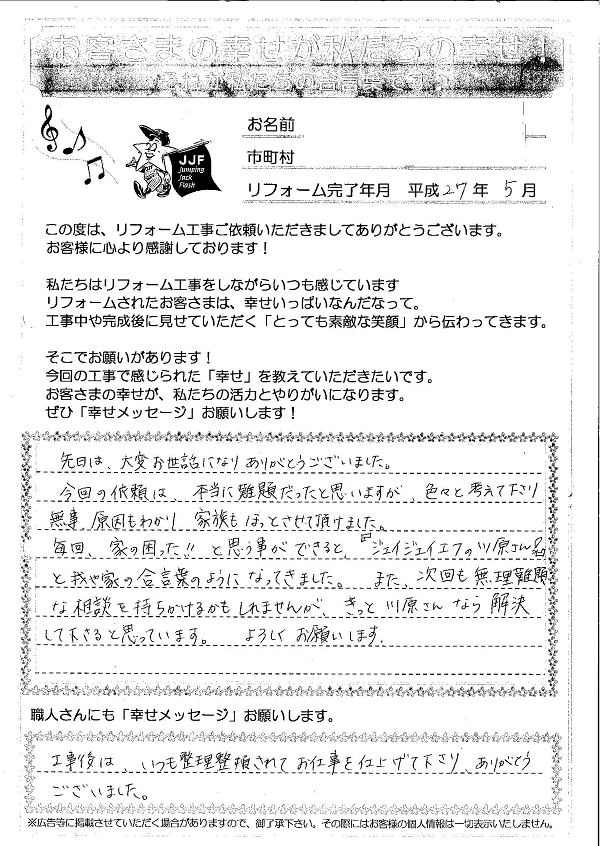 お客さまの幸せが私たちの幸せ！
それがみんなの合言葉です！
JJF
Jumping
Jack
Flash
お名前
市町村
リフォーム完了年月　平成27年　5月
この度は、リフォーム工事ご依頼いただきましてありがとうございます。
お客様に心より感謝しております！
私たちはリフォーム工事をしながらいつも感じています
リフォームされたお客さまは、幸せいっぱいなんだなって。
工事中や完成後に見せていただく「とっても素敵な笑顔」から伝わってきます。
そこでお願いがあります！
今回の工事で感じられた「幸せ」を教えていただきたいです。
お客さまの幸せが、私たちの活力とやりがいになります。
ぜひ「幸せメッセージ」お願いします！
先日は、大変お世話になりありがとうございました。
今回の依頼は、本当に難題だったと思いますが、色々と考えて下さり
無事 原因もわかり 家族もほっとさせて頂けました。
毎回、家の困った!! と思う事ができると、『ジェイジェイエフの川原さん』
と我や家の合言葉のようになってきました。　また、次回も無理難題
な相談を持ちかけるかもしれませんが、きっと川原さんなら解決
して下さると思っています。　よろしくお願いします.
職人さんにも「幸せメッセージ」お願いします。
工事後は、いつも整理整頓されてお仕事を仕上げて下さり、ありがとう
ございました。
※広告等に掲載させていただく場合がありますので、御了承下さい。その際にはお客様の個人情報は一切表示いたしません。